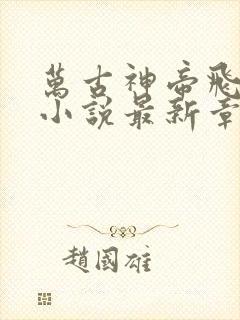 萬古神帝飛
小說最新章
趙國雄